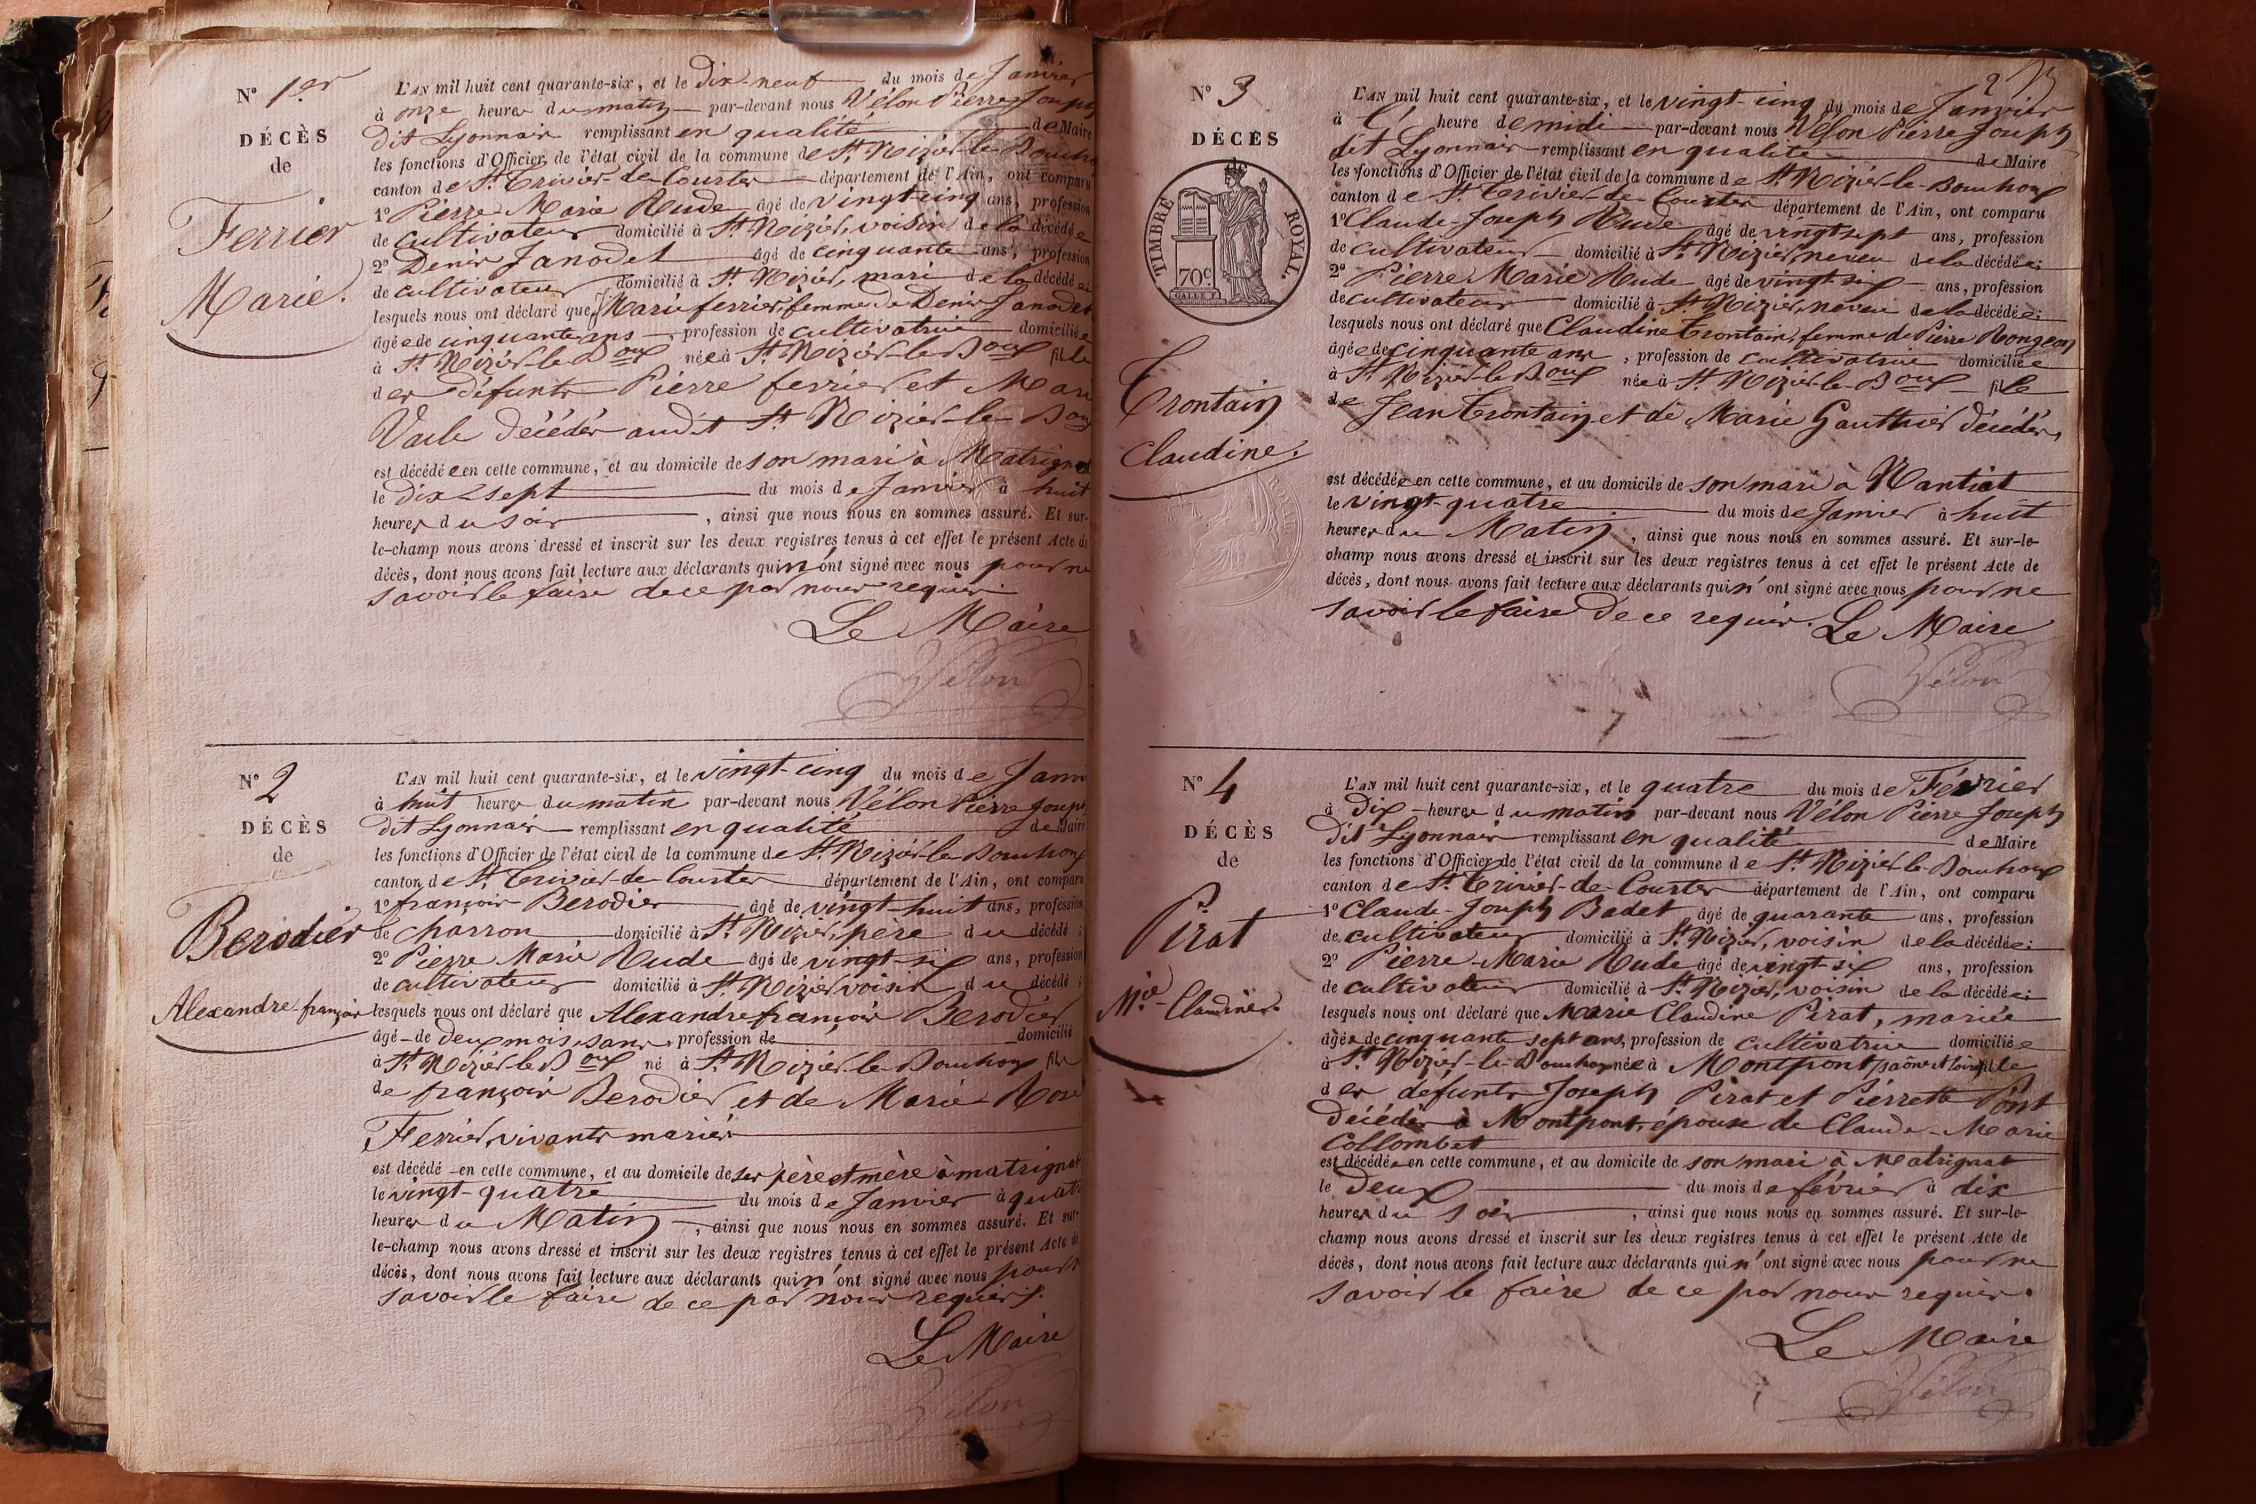 N° 1er
DÉCÈS
de
Ferrier
Marie.
L'AN mil huit cent quarante-six, et le dix-neuf du mois de Janvier
à onze heures du matin par-devant nous Vélon Pierre Joseph
dit Lyonnais remplissant en qualité de Maire
les fonctions d'Officier de l'état civil de la commune de St. Nizier-le-Bouho
canton de St. Trivier-de-Courtes département de l'Ain, ont comparu
1° Pierre Marie Rude âgé de vingt-cinq ans, profession
de cultivateur domicilié à St. Nizier, voisin de la décédée
2° Denis Janodet âgé de cinquante ans, profession
de cultivateur domicilié à St. Nizier, mari de la décédée
lesquels nous ont déclaré que Marie ferrier, femme de Denis Janodet
âgée de cinquante ans profession de cultivatrice domiciliée
à St. Nizier-le-Boux née à St. Nizier-le-Boux fille
des défunts Pierre ferrier et Mari
décédés audit St. Nizier-le-Boux
est décédée en cette commune, et au domicile de son mari à Matrignat
le dix-sept du mois de Janvier à huit
heures du soir, ainsi que nous nous en sommes assuré. Et sur-
le-champ nous avons dressé et inscrit sur les deux registres tenus à cet effet le présent Acte de
décès, dont nous avons fait lecture aux déclarants qui n'ont signé avec nous pour ne
savoir le faire de ce par nous requis
Le Maire
Vélon
N° 2
DÉCÈS
de
Berodier
Alexandre-françois
L'AN mil huit cent quarante-six, et le vingt-cinq du mois de Janv
à huit heures du matin par-devant nous Vélon Pierre Joseph
dit Lyonnais remplissant en qualité de Maire
les fonctions d'Officier de l'état civil de la commune de St. Nizier-le-Bouhoux
canton de St. Trivier-de-Courtes département de l'Ain, ont comparu
1° françois Berodier âgé de vingt-huit ans, profession
de charron domicilié à St. Nizier, père du décédé;
2° Pierre Marie Rude âgé de vingt-six ans, profession
de cultivateur domicilié à St. Nizier voisin du décédé;
lesquels nous ont déclaré que Alexandre françois Berodier
âgé de deux mois, sans profession de domicilié
à St. Nizier-le-Boux né à St. Nizier-le-Bouhoux fils
de françois Berodier et de Marie Rose
Ferrier, vivants mariés
est décédé en cette commune, et au domicile de ses père et mère à matrignat
le vingt-quatre du mois de Janvier à quatr
heures du Matin, ainsi que nous nous en sommes assuré. Et sur-
le-champ nous avons dressé et inscrit sur les deux registres tenus à cet effet le présent Acte de
décès, dont nous avons fait lecture aux déclarants qui n'ont signé avec nous pour n
savoir le faire de ce par nous requis.
Le Maire
Vélon
N° 3
DÉCÈS
de
TIMBRE ROYAL.
70c.
Trontain
Claudine.
L'AN mil huit cent quarante-six, et le vingt-cinq du mois de Janvier
à heure de midi par-devant nous Vélon Pierre Joseph
dit Lyonnais remplissant en qualité de Maire
les fonctions d'Officier de l'état civil de la commune de St. Nizier-le-Bouhoux
canton de St. Trivier-de-Courtes département de l'Ain, ont comparu
1° Claude-Joseph Rude âgé de vingt sept ans, profession
de cultivateur domicilié à St. Nizier, neveu de la décédée;
2° Pierre Marie Rude âgé de vingt-six ans, profession
de cultivateur domicilié à St. Nizier, neveu de la décédée;
lesquels nous ont déclaré que Claudine Trontain, femme de Pierre Rongeon
âgée de cinquante ans, profession de cultivatrice domiciliée
à St. Nizier-le-Boux née à St. Nizier-le-Boux fille
de Jean Trontain et de Marie Gauthier décédés,
est décédée en cette commune, et au domicile de son mari à Nantiat
le vingt-quatre du mois de Janvier à huit
heures du Matin, ainsi que nous nous en sommes assuré. Et sur-le-
champ nous avons dressé et inscrit sur les deux registres tenus à cet effet le présent Acte de
décès, dont nous avons fait lecture aux déclarants qui n'ont signé avec nous pour ne
savoir le faire de ce requis. Le Maire
Vélon
N° 4
DÉCÈS
de
Pirat
Mie Claudine.
L'AN mil huit cent quarante-six, et le quatre du mois de Février
à Dix heures du matin par-devant nous Vélon Pierre Joseph
Dit Lyonnais remplissant en qualité de Maire
les fonctions d'Officier de l'état civil de la commune de St. Nizier-le-Bouhoux
canton de St. Trivier-de-Courtes département de l'Ain, ont comparu
1° Claude-Joseph Badet âgé de quarante ans, profession
de cultivateur domicilié à St. Nizier, voisin de la décédée;
2° Pierre-Marie Rude âgé de vingt-six ans, profession
de cultivateur domicilié à St. Nizier, voisin de la décédée;
lesquels nous ont déclaré que Marie Claudine Pirat, mariée
âgée de cinquante sept ans, profession de cultivatrice domiciliée
à St. Nizier-le-Bouhoux née à Montpont (saône et loire) fille
des defunts Joseph Pirat et Pierrette Pont
Décédés à Montpont, épouse de Claude-Marie
Collombet
est décédée en cette commune, et au domicile de son mari à Matrignat
le Deux du mois de février à dix
heures du soir, ainsi que nous nous en sommes assuré. Et sur-le-
champ nous avons dressé et inscrit sur les deux registres tenus à cet effet le présent Acte de
décès, dont nous avons fait lecture aux déclarants qui n'ont signé avec nous pour ne
savoir le faire de ce par nous requis.
Le Maire
Vélon